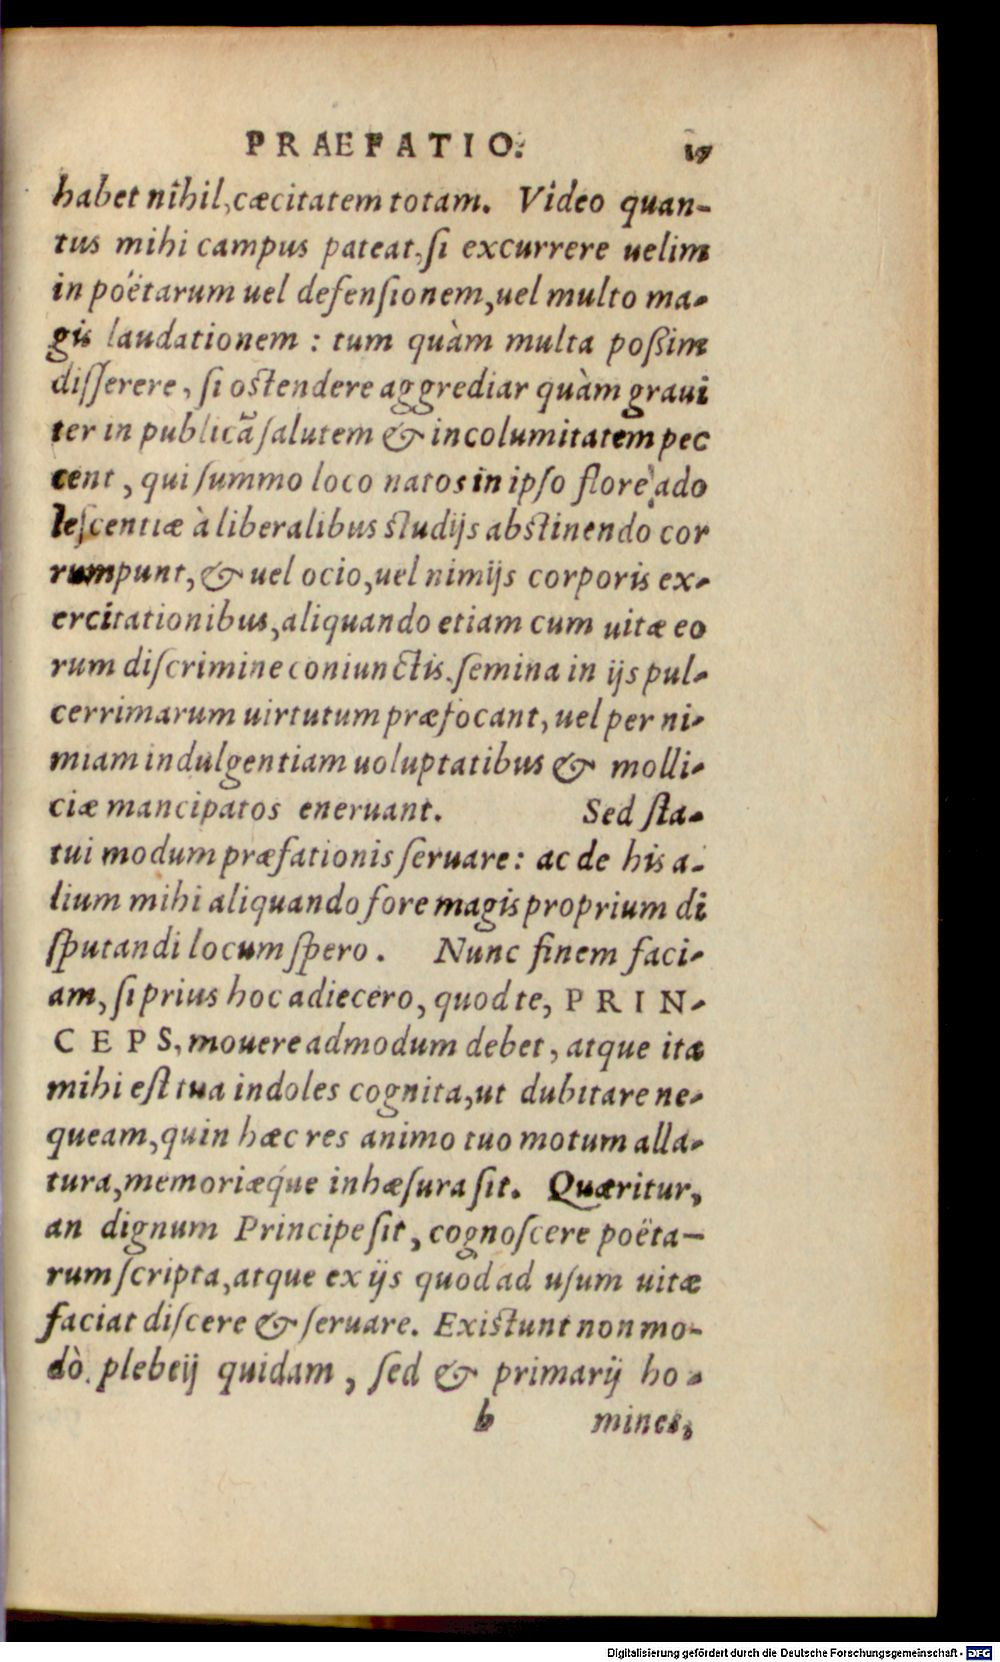 PRAEFATIO.
habet nihil, cæcitatem totam. Video quan-
tus mihi campus pateat, si excurrere uelim
in poëtarum uel defensionem, uel multo ma-
gis laudationem : tum quàm multa poßim
disserere, si ostendere aggrediar quàm graui
ter in publicã salutem & incolumitatem pec
cent, qui summo loco natos in ipso flore ado
lescentiæ à liberalibus studijs abstinendo cor
rumpunt, & uel ocio, uel nimijs corporis ex-
ercitationibus, aliquando etiam cum uitæ eo
rum discrimine coniunctis, semina in ijs pul-
cerrimarum uirtutum præfocant, uel per ni-
miam indulgentiam uoluptatibus & molli-
ciæ mancipatos eneruant. Sed sta-
tui modum præfationis seruare: ac de his a-
lium mihi aliquando fore magis proprium di
sputandi locum spero. Nunc finem faci-
am, si prius hoc adiecero, quod te, PRIN-
CEPS, mouere admodum debet, atque ita
mihi est tua indoles cognita, ut dubitare ne-
queam, quin hæc res animo tuo motum alla-
tura, memoriæque inhæsura sit. Quæritur,
an dignum Principe sit, cognoscere poëta-
rum scripta, atque ex ijs quod ad usum uitæ
faciat discere & seruare. Existunt non mo-
dò plebeij quidam, sed & primarij ho-
b mines,
Digitalisierung gefördert durch die Deutsche Forschungsgemeinschaft - DFG